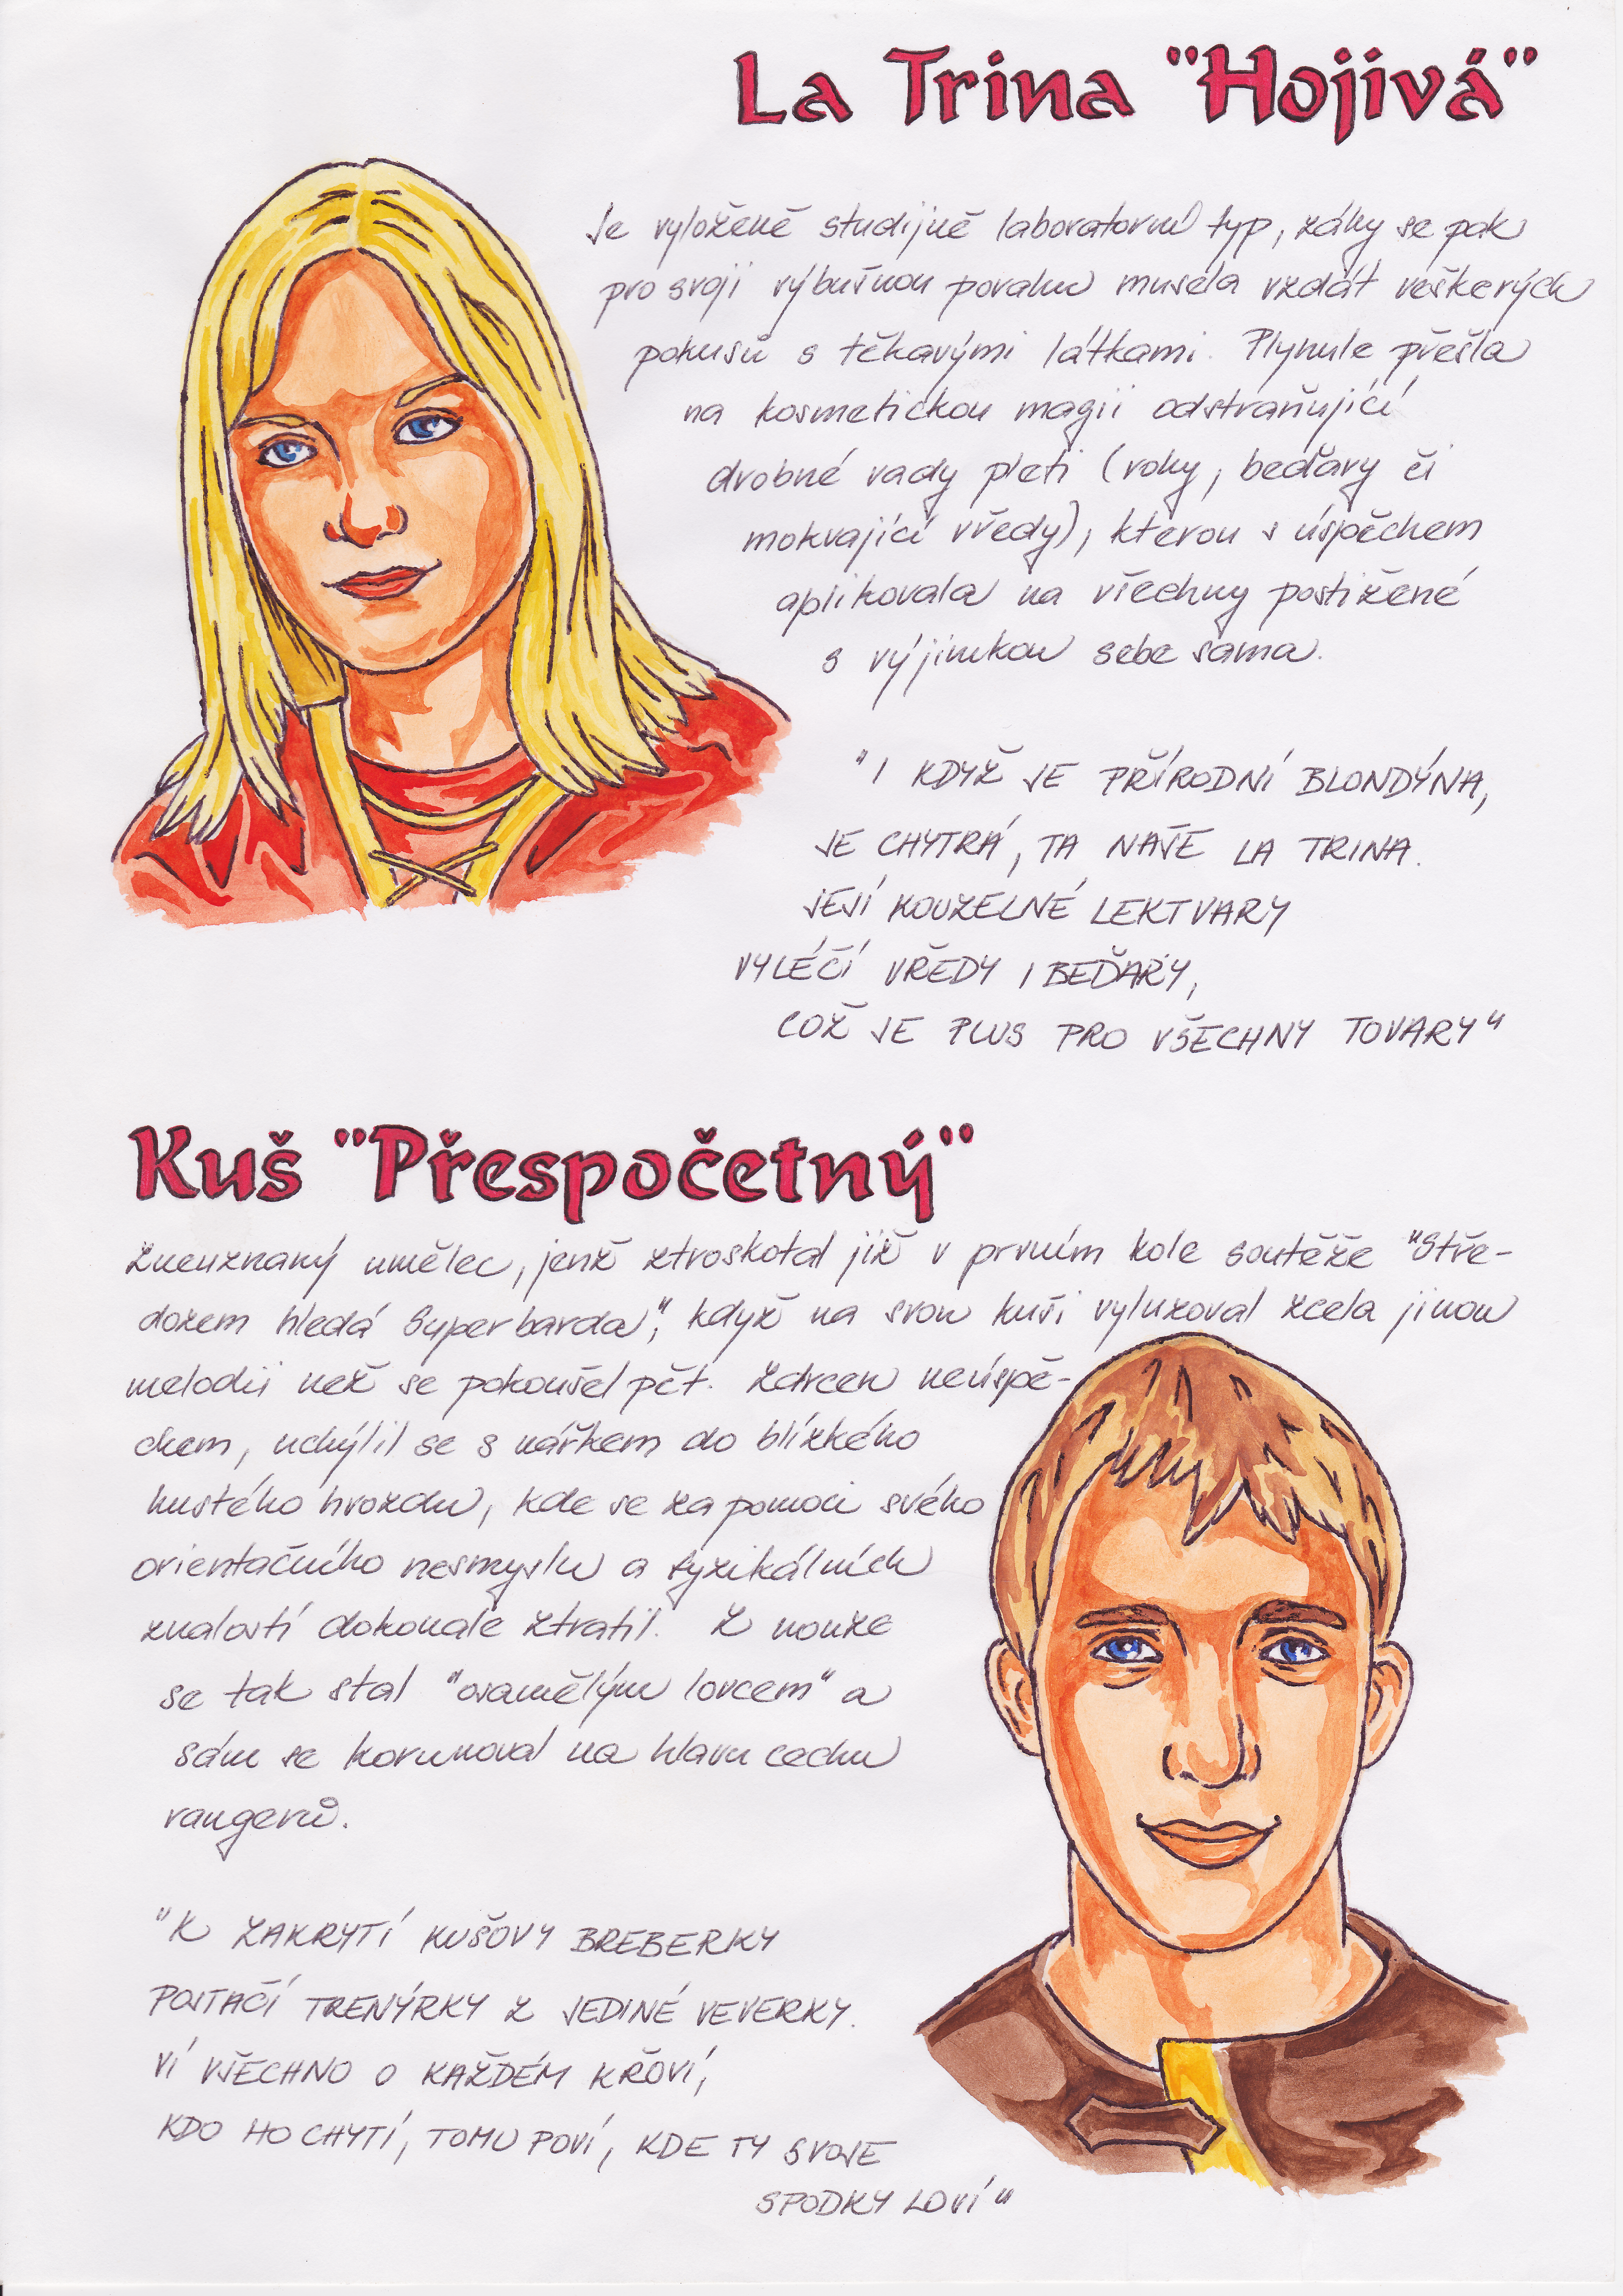 La Trina "Hojivá"
Je vyloženě studijně laboratorní typ, záhy se pak
pro svoji výbušnou povahu musela vzdát veškerých
pokusů s těkavými látkami. Plynule přešla
na kosmetickou magii odstraňující
drobné vady pleti (rohy, beďary či
mokvající vředy), kterou s úspěchem
aplikovala na všechny postižené
s výjimkou sebe sama.
"I KDYŽ JE PŘÍRODNÍ BLONDÝNA,
JE CHYTRÁ, TA NAŠE LA TRINA.
JEJÍ KOUZELNÉ LEKTVARY
VYLÉČÍ VŘEDY I BEĎARY,
COŽ JE PLUS PRO VŠECHNY TOVARY"
Kuš "Přespočetný"
Zneuznaný umělec, jenž ztroskotal již v prvním kole soutěže "Stře-
dozem hledá Superbarda", když na svou kuši vyluzoval zcela jinou
melodii než se pokoušel pět. Zdrcen neúspě-
chem, uchýlil se s nářkem do blízkého
hustého hvozdu, kde se za pomoci svého
orientačního nesmyslu a fyzikálních
znalostí dokonale ztratil. Z nouze
se tak stal "osamělým lovcem" a
sám se korunoval na hlavu cechu
rangerů.
"K ZAKRYTÍ KUŠOVY BREBERKY
POSTAČÍ TRENÝRKY Z JEDINÉ VEVERKY.
VÍ VŠECHNO O KAŽDÉM KŘOVÍ,
KDO HO CHYTÍ, TOMU POVÍ, KDE TY SVOJE
SPODKY LOVÍ"